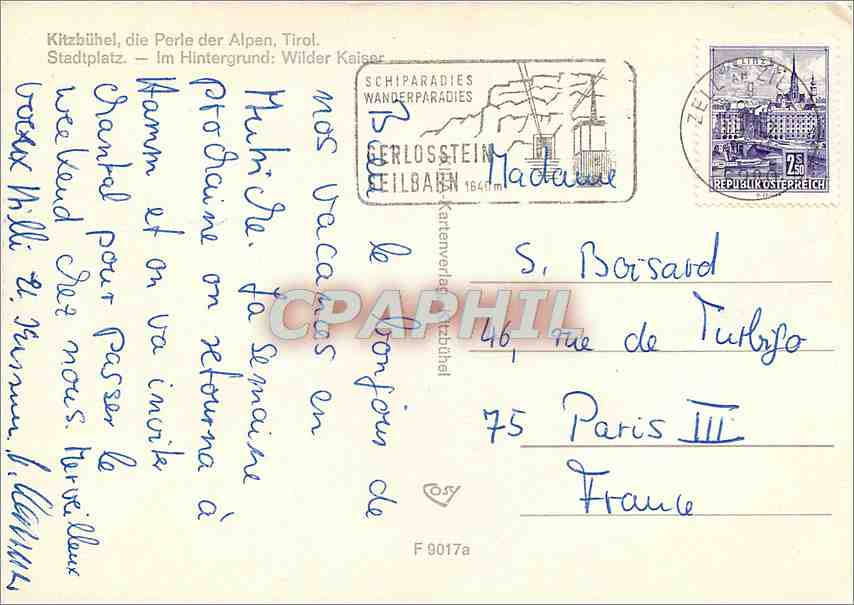 Kitzbühel, die Perle der Alpen, Tirol.
Stadtplatz. — Im Hintergrund: Wilder Kaiser
SCHIPARADIES
WANDERPARADIES
GERLOSSTEIN
SEILBAHN 1640m
LINZ
ZELL
2.50
S
REPUBLIK ÖSTERREICH
le bonjour de
nos vacances en
Autriche. La semaine
prochaine on retourna à
Hamm et on va inviter
Chantal pour passer le
weekend chez nous. Merveilleux
voeux Willi u.
Madame
S. Boisard
46, rue de Turbigo
75 Paris III
France
Kartenverlag Kitzbühel
COSY
F 9017a
CPAPHIL